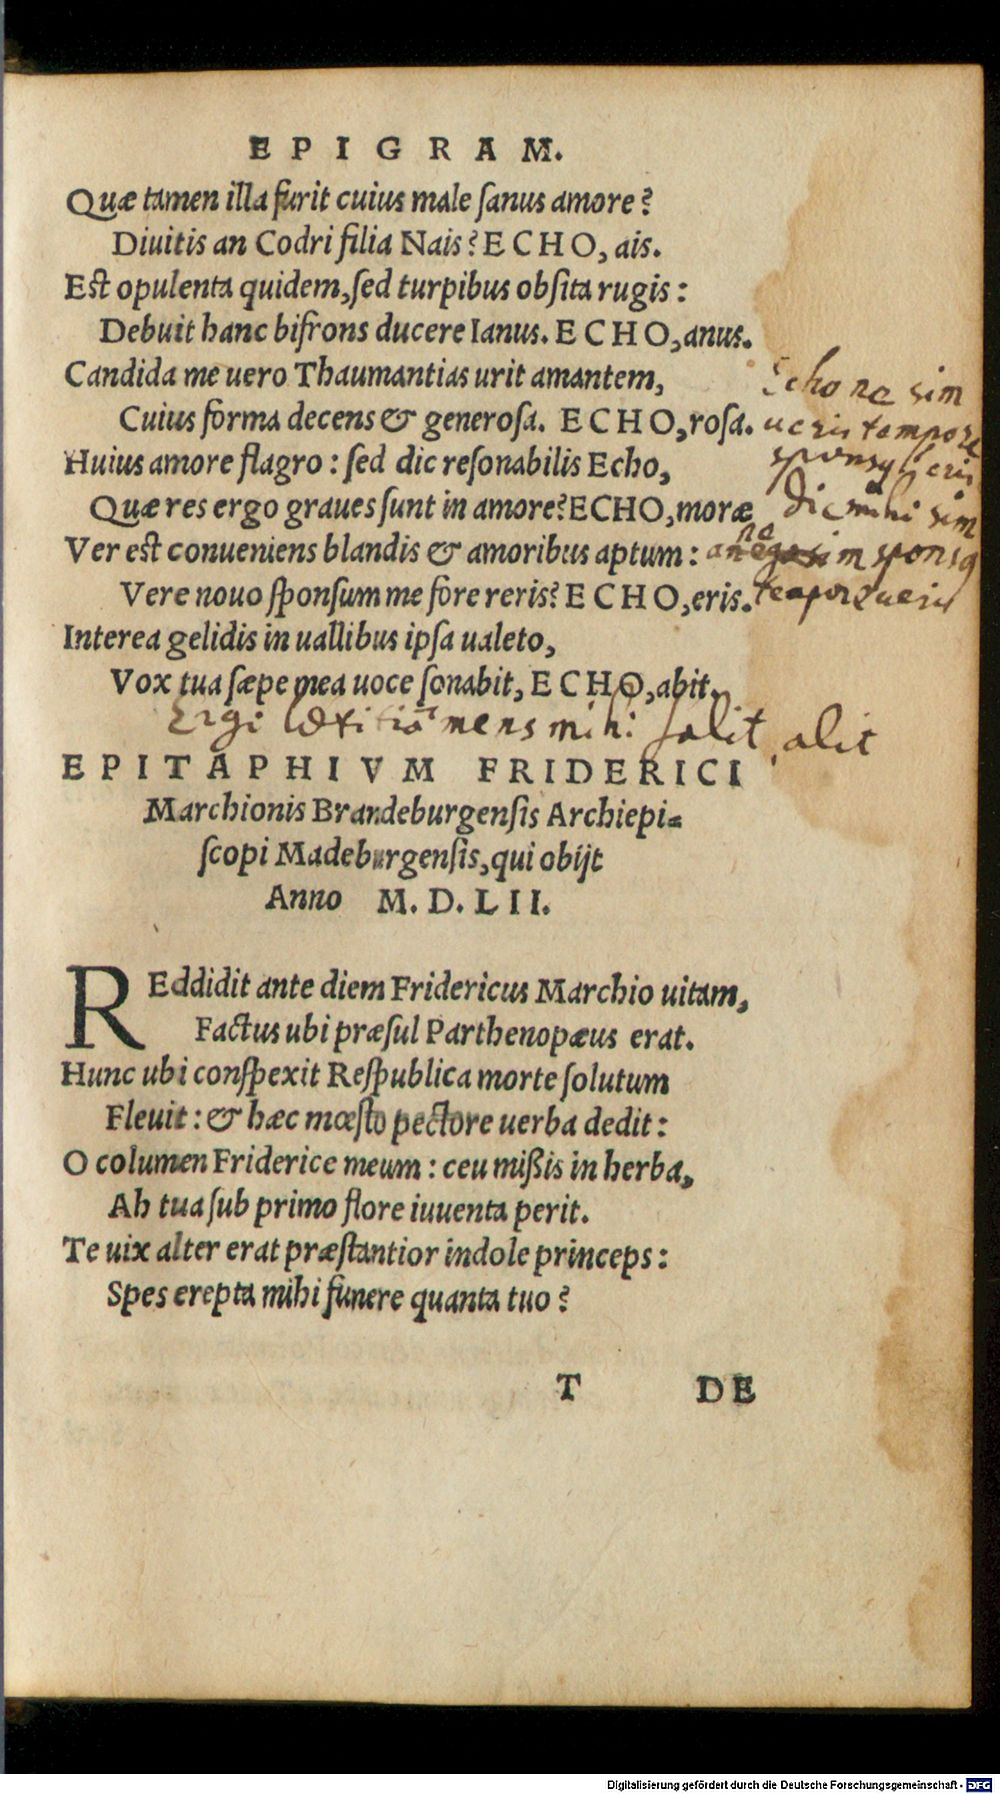 EPIGRAM.
Quæ tamen illa furit cuius male ſanus amore?
Diuitis an Codri filia Nais? ECHO, ais.
Eſt opulenta quidem, ſed turpibus obſita rugis:
Debuit hanc bifrons ducere Ianus. ECHO, anus.
Candida me uero Thaumantias urit amantem,
Cuius forma decens & generoſa. ECHO, roſa.
Huius amore flagro: ſed dic reſonabilis Echo,
Quæ res ergo graues ſunt in amore? ECHO, moræ
Ver eſt conueniens blandis & amoribus aptum:
Vere nouo ſponſum me fore reris? ECHO, eris.
Interea gelidis in uallibus ipſa ualeto,
Vox tua ſæpe mea uoce ſonabit, ECHO, abit.
Echo ne sim
ueris tempore
sponsus eris
Dic mihi sim
ne sim sponsa
tempore ueris
Ergi lætitiā mens mihi salit, alit
EPITAPHIVM FRIDERICI
Marchionis Brandeburgenſis Archiepi⸗
ſcopi Madeburgenſis, qui obijt
Anno M. D. LII.
REddidit ante diem Fridericus Marchio uitam,
Factus ubi præſul Parthenopæus erat.
Hunc ubi conſpexit Reſpublica morte ſolutum
Fleuit: & hæc mœſto pectore uerba dedit:
O columen Friderice meum: ceu mißis in herba,
Ah tua ſub primo flore iuuenta perit.
Te uix alter erat præſtantior indole princeps:
Spes erepta mihi funere quanta tuo?
T DE
Digitalisierung gefördert durch die Deutsche Forschungsgemeinschaft - DFG